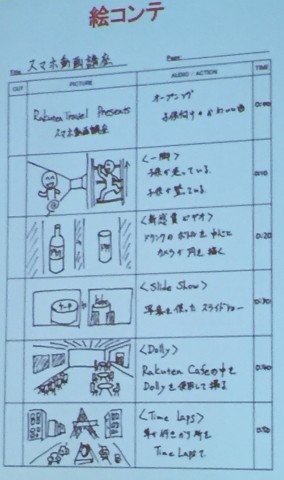 絵コンテ
Title スマホ動画講座 Page
CUT PICTURE AUDIO : ACTION TIME
Rakuten Travel Presents
スマホ動画講座
オープニング
0:00
<一脚>
子供が走っている。
子供が
0:10
<新感覚ビデオ>
ドリンクのボトルを中心に
カメラが円を描く。
0:20
<Slide Show>
写真を使ったスライドショー
0:30
<Dolly>
Rakuten Cafeの中を
Dollyを使用して撮る
0:40
<Time Laps>
Time Lapsで
0:50